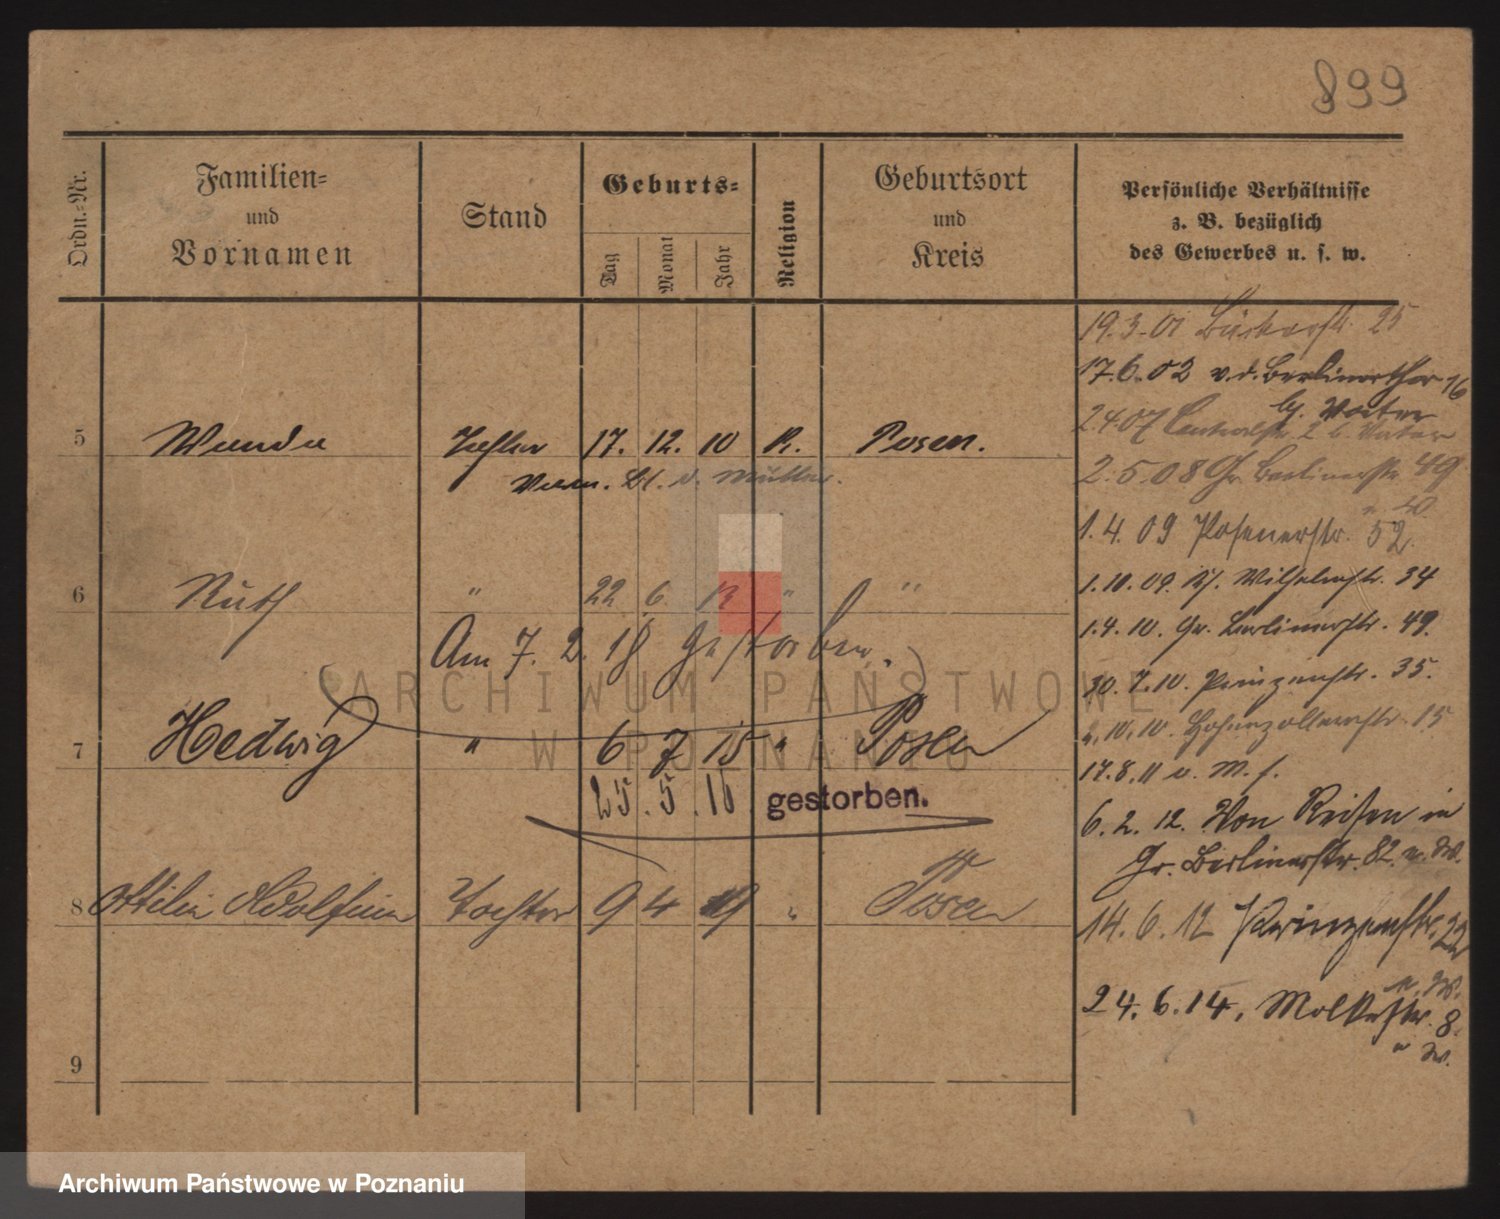 899
Ordn.-Nr.
Familien-
und
Vornamen
Stand
Geburts-
Tag
Monat
Jahr
Religion
Geburtsort
und
Kreis
Persönliche Verhältnisse
z. B. bezüglich
des Gewerbes u. s. w.
19.3.01 25
17.6.02 v. d. Berlinerthor 16
b. Vater
2.4.07 2 b. Vater
5 Wanda Tochter 17. 12. 10 K. Posen.
2.5.08 Gr. Berlinerstr. 49
d. Mutter.
1.4.09 Posenerstr. 52.
6 Ruth " 22 6. " "
1.10.09. Wilhelmstr. 34
Am 7. 2. 18 gestorben.
1.4.10. Gr. Berlinerstr. 49.
30.7.10. Prinzenstr. 35.
ARCHIWUM PAŃSTWOWE
W POZNANIU
7 Hedwig " 6 7 15 " Posen
10.10. Hohenzollernstr. 15
25.5.16. gestorben.
17.8.11 v. M. f.
6.2.12. Von Reisen in
Gr. Berlinerstr. 82.
8 Ottilie Tochter 9 4 19 " Posen
14.6.12 Prinzenstr. 22
24.6.14. Moltkestr. 8.
9
Archiwum Państwowe w Poznaniu